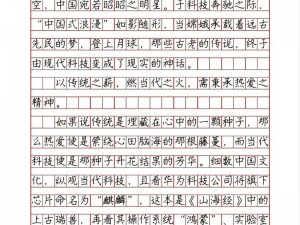 空，中国宛若昭昭之明星。于科技奔驰之际，
“中国式浪漫”如影随形，当嫦娥承载着远古
先民的梦，登上月球，那些古老的传统，终于
由现代科技变成了现实的神话。
以传统之薪，燃当代之火，需秉承热爱之
精神。
如果说传统是埋藏在心中的一颗种子，那
么热爱便是萦绕心田脑海的那根藤蔓，而当代
科技便是那种子开花结果的芳华。细数中国文
化，纵观当代科技，且看华为科技公司将旗下
芯片命名为“麒麟”，这本是《山海经》中的上
古瑞兽，再看其操作系统“鸿蒙”、实验室